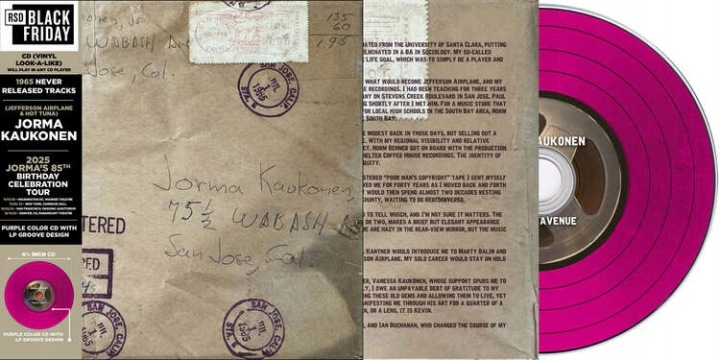 RSD BLACK
FRIDAY
CD (VINYL
LOOK-A-LIKE)
WILL PLAY IN ANY CD PLAYER
1965 NEVER
RELEASED TRACKS
(JEFFERSON AIRPLANE
& HOT TUNA)
JORMA
KAUKONEN
2025
JORMA'S 85TH
BIRTHDAY
CELEBRATION
TOUR
PURPLE COLOR CD WITH
LP GROOVE DESIGN
4¾ INCH CD
PURPLE COLOR CD WITH
LP GROOVE DESIGN
Jr
WABASH
Jose, Cal.
135
60
1.95
SAN JOSE, CALIF.
1965
Jorma Kaukonen
75 ½ WABASH
San Jose, Cal.
TERED
SAN JOSE, CALIF.
1965
SAN JOSE, CALIF.
1965
ATED FROM THE UNIVERSITY OF SANTA CLARA, PUTTING
LMINATED IN A BA IN SOCIOLOGY. MY SO-CALLED
LIFE GOAL, WHICH WAS TO SIMPLY BE A PLAYER AND
WHAT WOULD BECOME JEFFERSON AIRPLANE, AND MY
RECORDINGS. I HAD BEEN TEACHING FOR THREE YEARS
ANY ON STEVENS CREEK BOULEVARD IN SAN JOSE. PAUL
NG SHORTLY AFTER I MET HIM. FOR A MUSIC STORE THAT
FOR LOCAL HIGH SCHOOLS IN THE SOUTH BAY AREA, NORM
SOUTH BAY.
MODEST BACK IN THOSE DAYS, BUT SELLING OUT A
. WITH MY REGIONAL VISIBILITY AND RELATIVE
ET, NORM BENNER GOT ON BOARD WITH THE PRODUCTION
SHELTER COFFEE HOUSE RECORDINGS. THE IDENTITY OF
QUITY.
STERED "POOR MAN'S COPYRIGHT" TAPE I SENT MYSELF
ED ME FOR FORTY YEARS AS I MOVED BACK AND FORTH
WOULD THEN SPEND ALMOST TWO DECADES RESTING
COUNTY, WAITING TO BE REDISCOVERED.
TO TELL WHICH, AND I'M NOT SURE IT MATTERS. THE
OR TWO, MAKES A BRIEF BUT ELEGANT APPEARANCE
ARE HAZY IN THE REAR-VIEW MIRROR, BUT THE MUSIC
KANTNER WOULD INTRODUCE ME TO MARTY BALIN AND
SON AIRPLANE. MY SOLO CAREER WOULD STAY ON HOLD
ER, VANESSA KAUKONEN, WHOSE SUPPORT SPURS ME TO
LY, I OWE AN UNPAYABLE DEBT OF GRATITUDE TO MY
NG THESE OLD GEMS AND ALLOWING THEM TO LIVE, YET
ANIFESTING ME THROUGH HIS ART FOR A QUARTER OF A
N, OR A LENS, IT IS KEVIN.
, AND IAN BUCHANAN, WHO CHANGED THE COURSE OF MY
AUKONEN
AVENUE